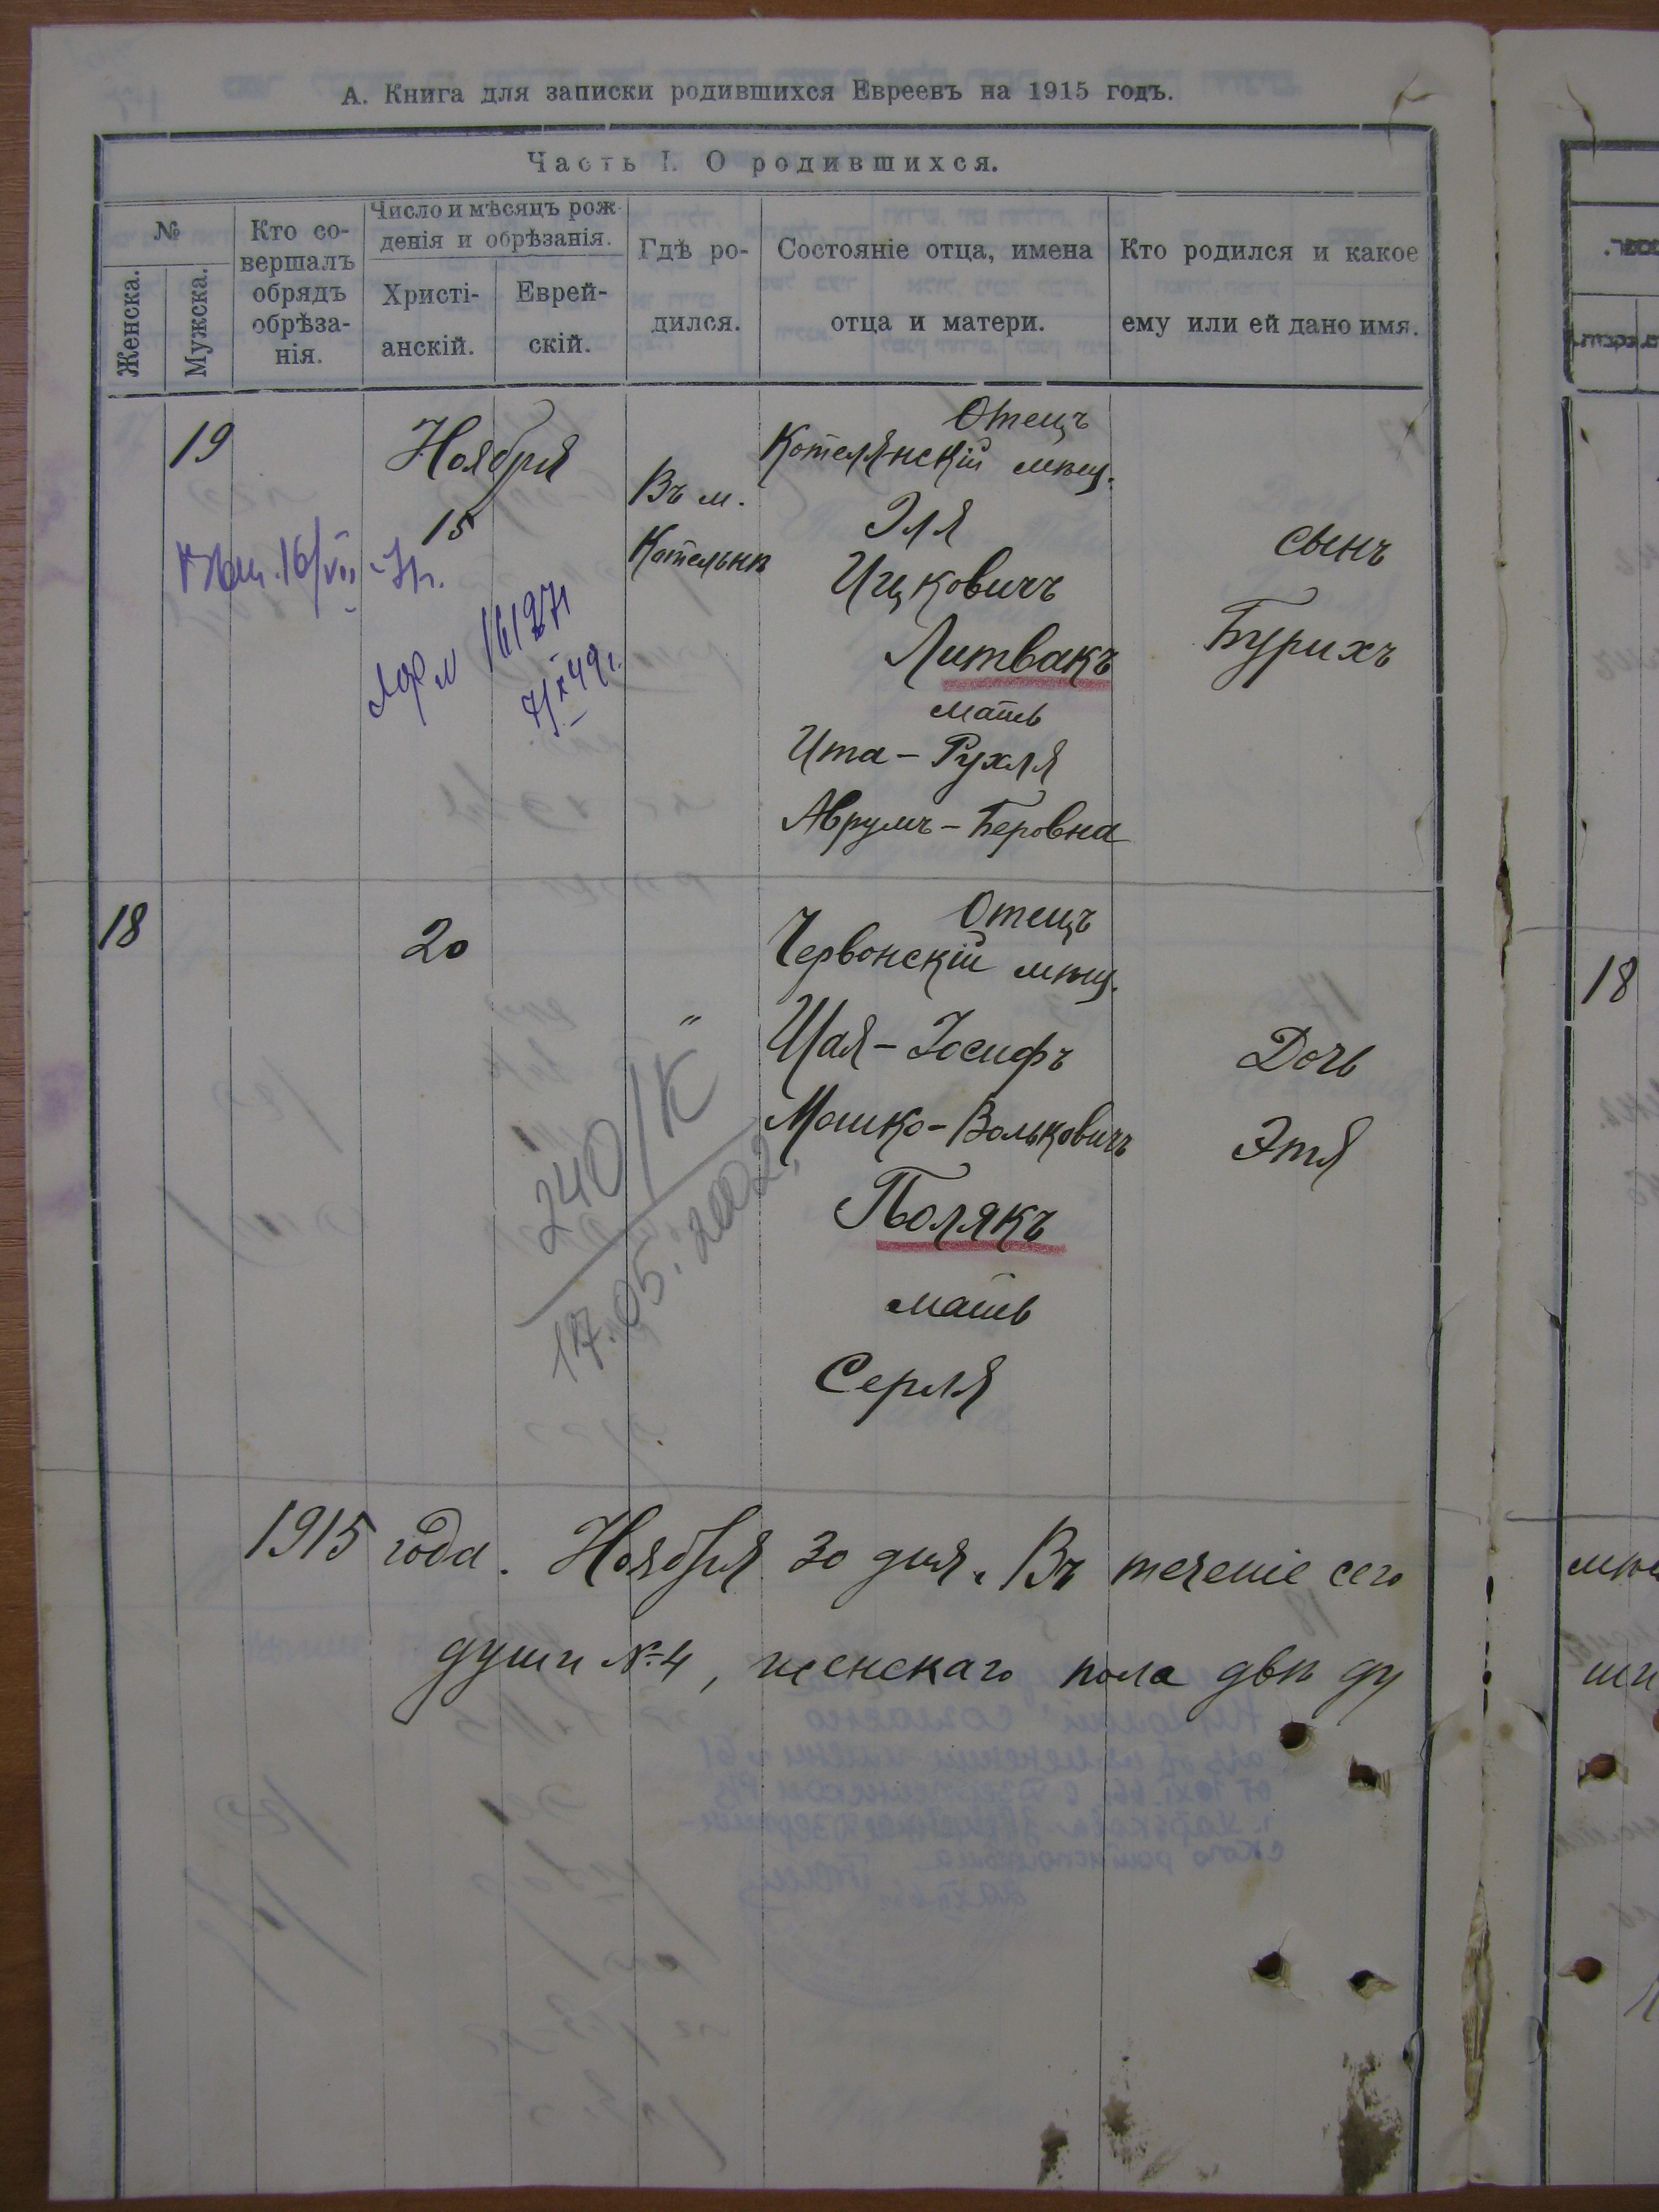 А. Книга для записки родившихся Евреевъ на 1915 годъ.
Часть I. О родившихся.
№
Женска.
Мужска.
Кто со-
вершалъ
обрядъ
обрѣза-
нія.
Число и мѣсяцъ рож
денія и обрѣзанія.
Христі-
анскій.
Еврей-
скій.
Гдѣ ро-
дился.
Состояніе отца, имена
отца и матери.
Кто родился и какое
ему или ей дано имя.
19
Ноября
15
Въ м.
Котельнѣ
Отецъ
Котелянскій мѣщ.
Эля
Ицковичъ
Литвакъ
мать
Ита-Рухля
Аврумъ-Беровна
сынъ
Бурихъ
18
20
"
Отецъ
Червонскій мѣщ.
Шая-Іосифъ
Мошко-Вольковичъ
Полякъ
мать
Серля
Дочь
Этя
240/К
17.05.2002.
1915 года. Ноября 30 дня. Въ теченіе сего
души №4, женскаго пола двѣ ду
18